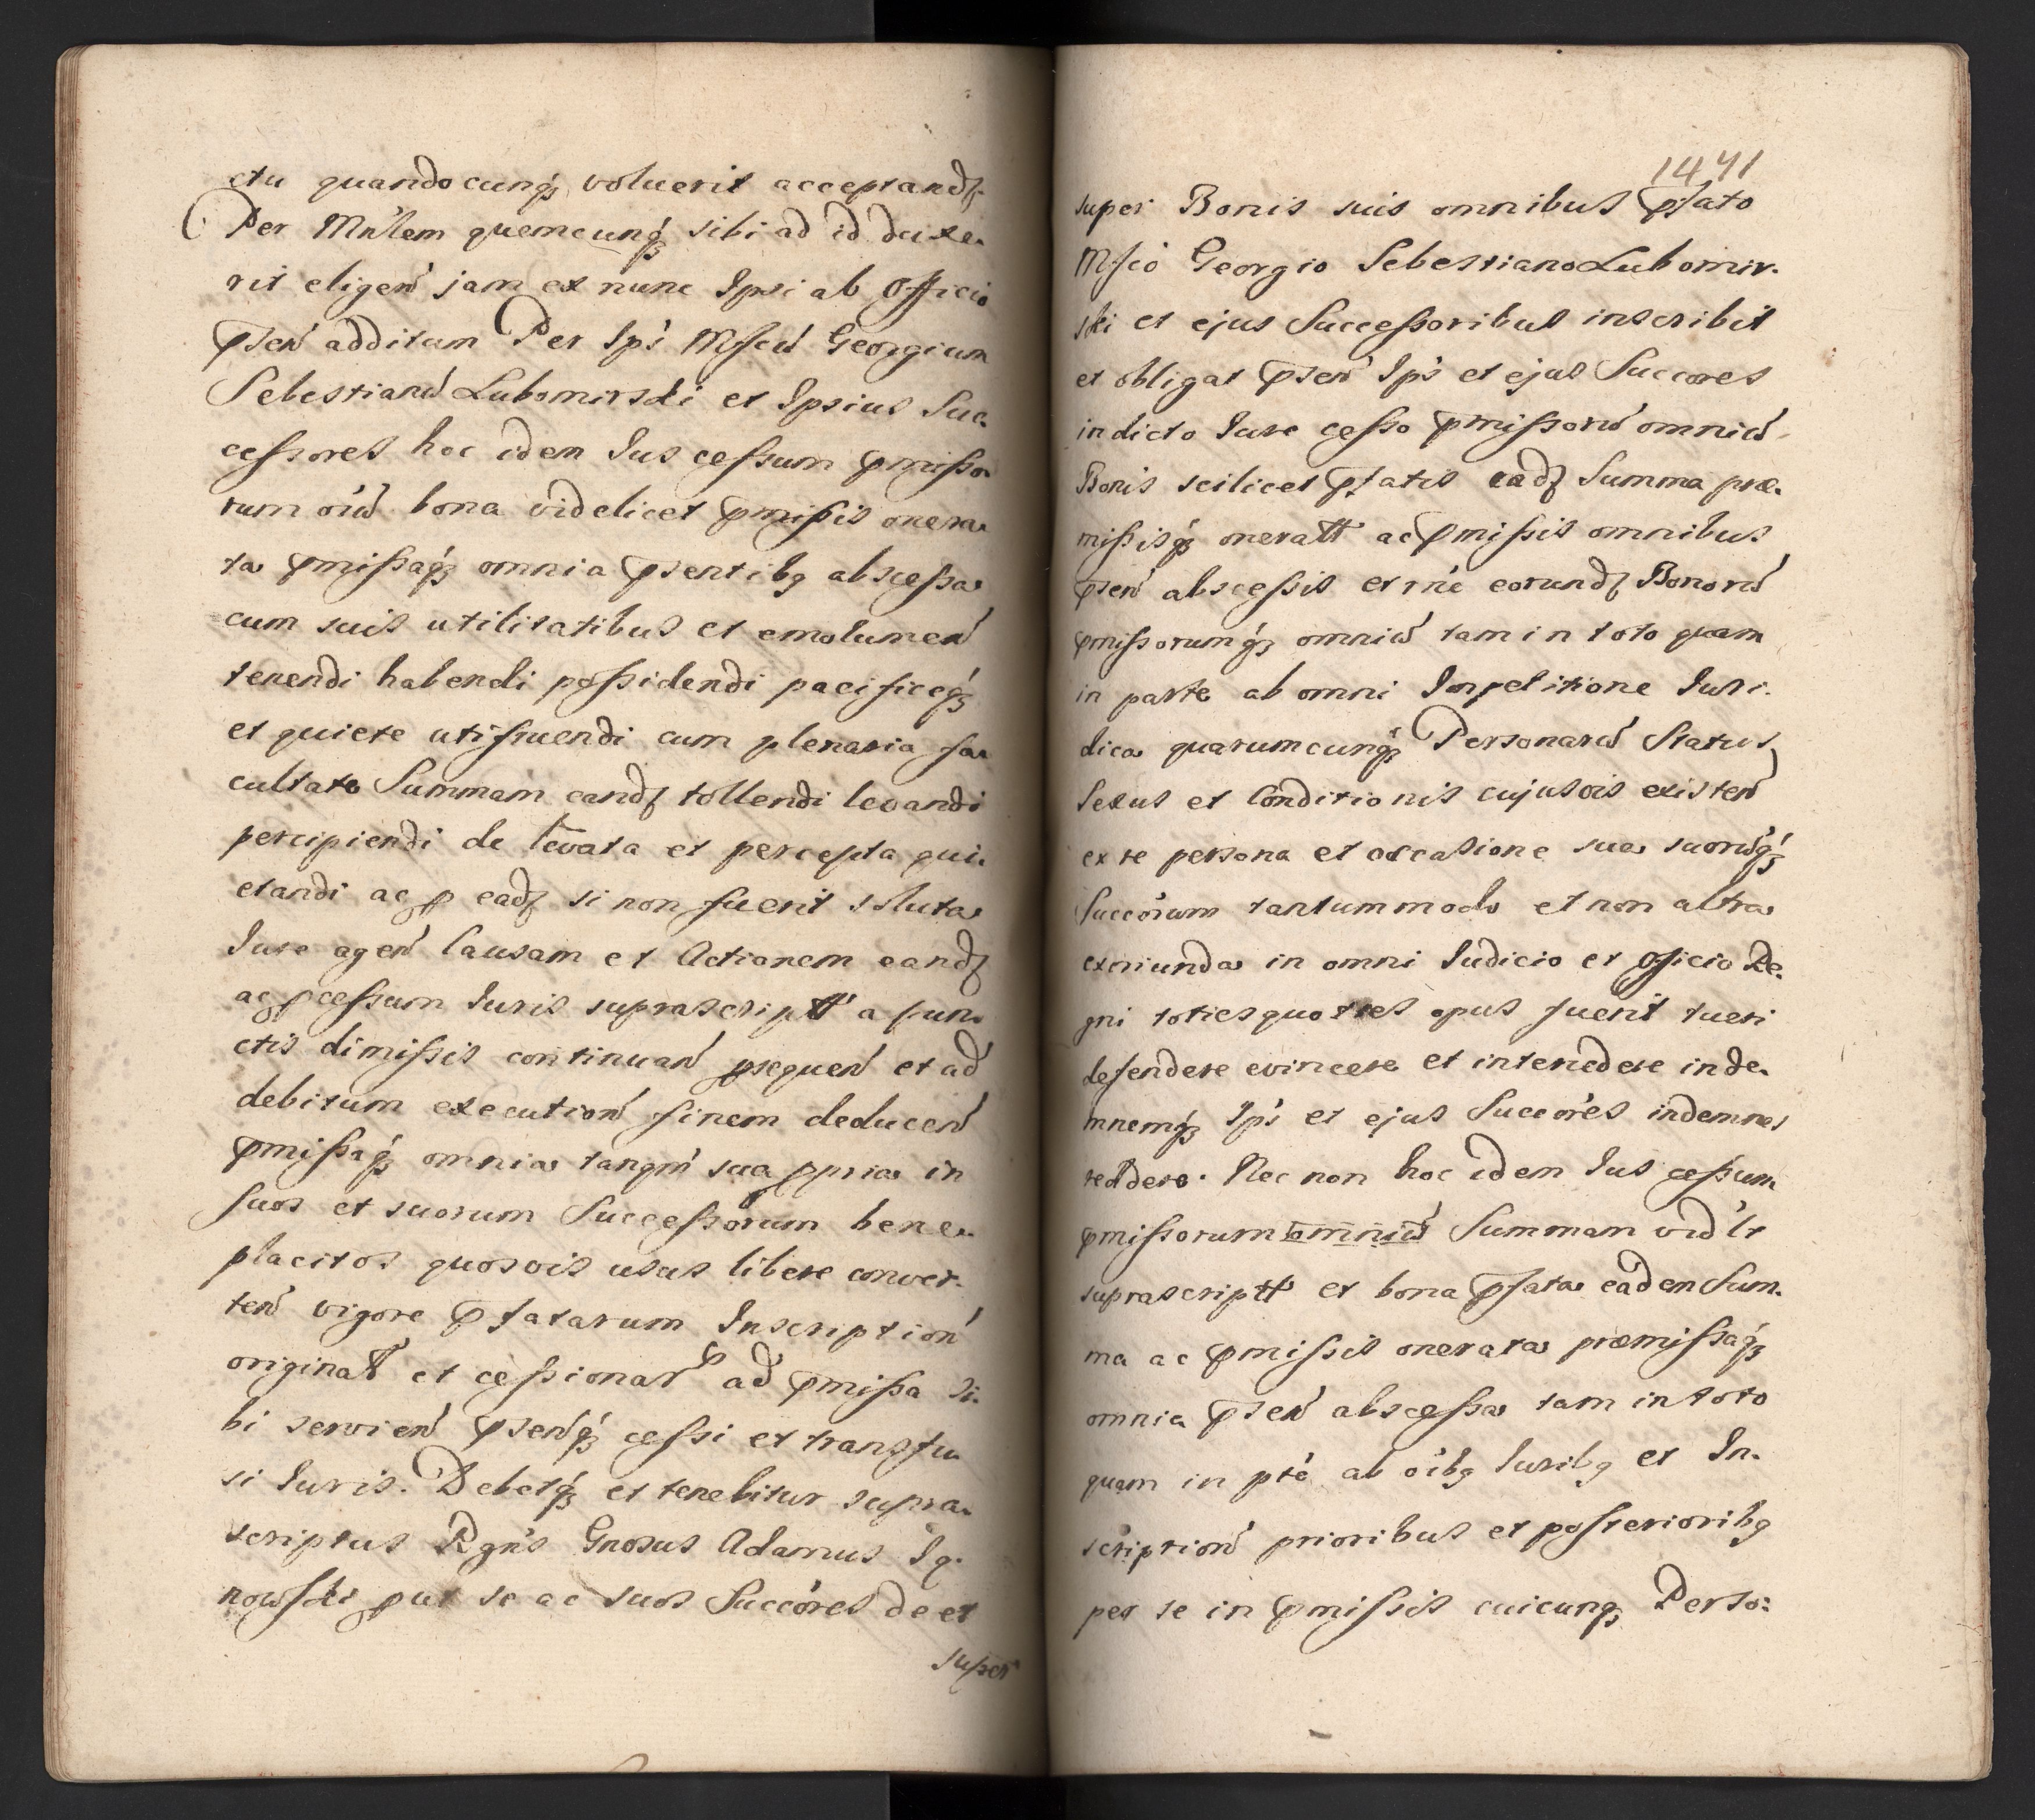 ctu quandocunq́ꝫ voluerit acceptandꝭ
Per Mńlem quemcunq́ꝫ sibi ad id duxe.
rit eligen̄ jam ex nunc Ipsi ab Officio
p̄sen̄ additum Per Ips̄ Mfcū Georgium
Sebestianū Lubomirski et Ipsius Suc.
cessores hoc idem Jus cessum p̄misso.
rum oīū bona videlicet p̄missis onera.
ta p̄missaq́ꝫ omnia p̄sentibꝫ abscessa
cum suis utilitatibus et emolumen̄
tenendi habendi possidendi pacificeq́ꝫ
et quiete utifruendi cum plenaria fa.
cultate Summam eandꝭ tollendi levandi
percipiendi de levata et percepta qui.
etandi ac p eadꝭ si non fuerit soluta
Jure agen̄ Causam et Actionem eandꝭ
ac pcessum Juris suprascriptt a pun.
ctis dimissis continuan̄ psequen̄ et ad
debitum execution̄ finem deducen̄
p̄missaq́ꝫ omnia tanqm̄ sua ppria in
suos et suorum Successorum bene.
placitos quosvis usus libere conver.
ten̄ vigore p̄fatarum Inscription̄
originał et cessionał ad p̄missa si.
bi servien̄ p̄senq́ꝫ cessi et transfu.
si Juris. Debetq́ꝫ et tenebitur supra.
scriptus Rgn̄s Gnosus Adamus Ig.
nowski put se ac suos Succōres de et
super
1441
super Bonis suis omnibus p̄fato
Mfcō Georgio Sebestiano Lubomir.
ski et ejus Successoribus inscribit
et obligat p̄sen̄ Ips̄ et ejus Succores
in dicto Jure cesso p̄missorū omniū
Bonis scilicet p̄fatis eadꝭ Summa præ.
missisq́ꝫ oneratt ac p̄missis omnibus
p̄sen̄ abscessis et rn̄e eorundꝭ Bonorū
p̄missorumq́ꝫ omniū tam in toto quam
in parte ab omni Impetitione Juri.
dica quarumcunq́ꝫ Personarū Status
Sexus et Conditionis cujusvis existen̄
ex re persona et occasione sua suorūq́ꝫ
Succōrum tantummodo et non altra
exoriunda in omni Judicio et officio Re.
gni toties quoties opus fuerit tueri
defendere evincere et intercedere inde.
mnemq́ꝫ Ips̄ et ejus Succōres indemnes
reddere. Nec non hoc idem Jus cessum
p̄missorum omniū Summam vid̄lt
suprascriptt et bona p̄fata eadem Sum.
ma ac p̄missis onerata præmissaq́ꝫ
omnia p̄sen̄ abscessa tam in toto
quam in pt̄e ab oībꝫ Juribꝫ et In.
scription̄ prioribus et posterioribꝫ
per se in p̄missis cuicunqꝫ Perso: